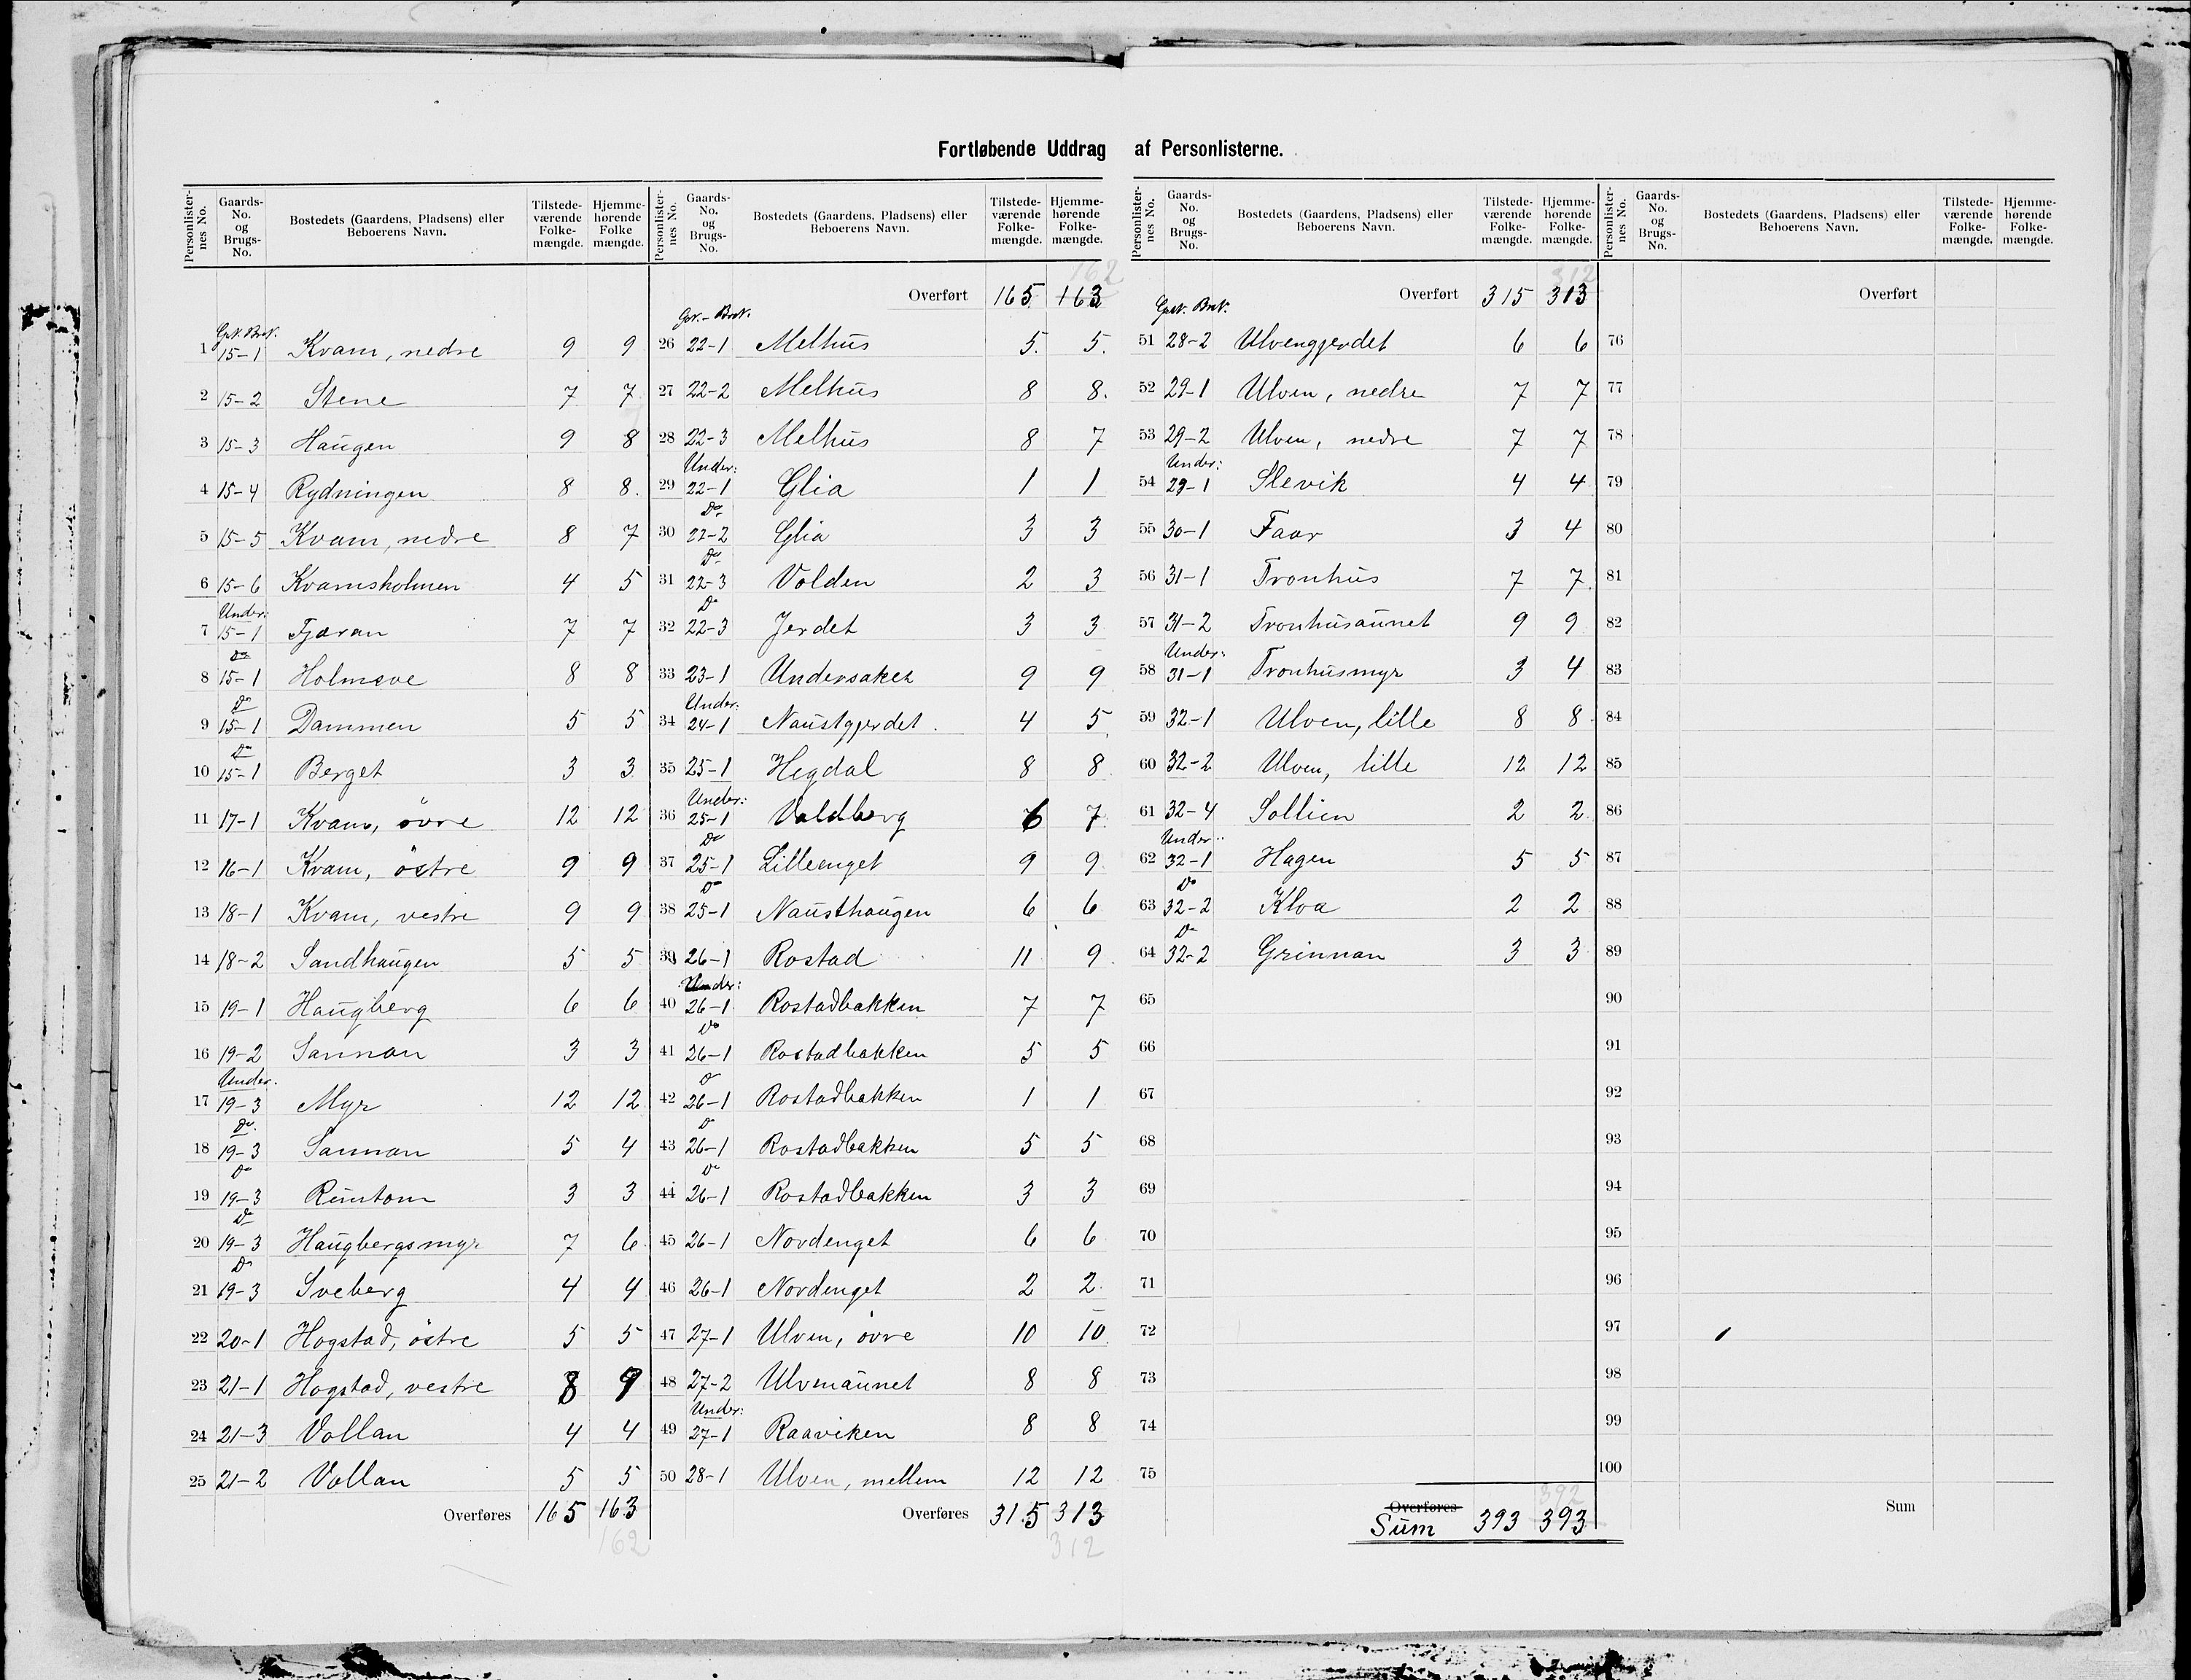 Fortløbende Uddrag af Personlisterne.
Personlisternes No. Gaards-No. og Brugs-No. Bostedets (Gaardens, Pladsens) eller Beboerens Navn. Tilstedeværende Folkemængde. Hjemmehørende Folkemængde.
Gsk. Bsk.
1 15-1 Kvam, nedre 9 9
2 15-2 Stene 7 7
3 15-3 Haugen 9 8
4 15-4 Rydningen 8 8.
5 15-5 Kvam, nedre 8 7
6 15-6 Kvamsholmen 4 5
Under:
7 15-1 Tjæran 7 7
Do
8 15-1 Holmsve 8 8
Do
9 15-1 Dammen 5 5
Do
10 15-1 Berget 3 3
11 17-1 Kvam, övre 12 12
12 16-1 Kvam, östre 9 9
13 18-1 Kvam, vestre 9 9
14 18-2 Sandhaugen 5 5
15 19-1 Haugberg 6 6
16 19-2 Sannan 3 3
Under.
17 19-3 Myr 12 12
Do.
18 19-3 Sannan 5 4
Do
19 19-3 Rumtom 3 3
Do
20 19-3 Haugbergsmyr 7 6
Do
21 19-3 Sveberg 4 4
22 20-1 Hogstad, östre 5 5
23 21-1 Hogstad, vestre 8 9
24 21-3 Vollan 4 4
25 21-2 Vollan 5 5
Overføres 165 163
162
Personlisternes No. Gaards-No. og Brugs-No. Bostedets (Gaardens, Pladsens) eller Beboerens Navn. Tilstedeværende Folkemængde. Hjemmehørende Folkemængde.
162
Overført 165 163
26 22-1 Melhus 5. 5.
27 22-2 Melhus 8 8.
28 22-3 Melhus 8 7
Under:
29 22-1 Glia 1 1
Do
30 22-2 Glia 3 3
Do
31 22-3 Volden 2 3
Do
32 22-3 Jerdet 3 3
33 23-1 Undersaker 9 9
Under:
34 24-1 Naustgjerdet 4 5
35 25-1 Hegdal 8 8
Under:
36 25-1 Valdberg 6 7
Do
37 25-1 Lilleenget 9 9
Do
38 25-1 Nausthaugen 6 6
39 26-1 Rostad 11 9
Under:
40 26-1 Rostadbakken 7 7
Do
41 26-1 Rostadbakken 5 5
Do
42 26-1 Rostadbakken 1 1
Do
43 26-1 Rostadbakken 5 5
Do
44 26-1 Rostadbakken 3 3
45 26-1 Nordenget 6 6
46 26-1 Nordenget 2 2
47 27-1 Ulven, övre 10 10
48 27-2 Ulvenaunet 8 8
Under:
49 27-1 Raaviken 8 8
50 28-1 Ulven, mellem 12 12
Overføres 315 313
312
Personlisternes No. Gaards-No. og Brugs-No. Bostedets (Gaardens, Pladsens) eller Beboerens Navn. Tilstedeværende Folkemængde. Hjemmehørende Folkemængde.
312
Overført 315 313
51 28-2 Ulvengjerdet 6 6
52 29-1 Ulven, nedre 7 7
53 29-2 Ulven, nedre 7 7
Under:
54 29-1 Slevik 4 4
55 30-1 Faar 3 4
56 31-1 Tronhus 7 7
57 31-2 Tronhusaunet 9 9
Under:
58 31-1 Tronhusmyr 3 4
59 32-1 Ulven, lille 8 8
60 32-2 Ulven, lille 12 12
61 32-4 Sollien 2 2
Under:
62 32-1 Hagen 5 5
Do
63 32-2 Kloa 2 2
Do
64 32-2 Grinnan 3 3
65
66
67
68
69
70
71
72
73
74
75
392
Overføres
Sum 393 393
Personlisternes No. Gaards-No. og Brugs-No. Bostedets (Gaardens, Pladsens) eller Beboerens Navn. Tilstedeværende Folkemængde. Hjemmehørende Folkemængde.
Overført
76
77
78
79
80
81
82
83
84
85
86
87
88
89
90
91
92
93
94
95
96
97
98
99
100
Sum